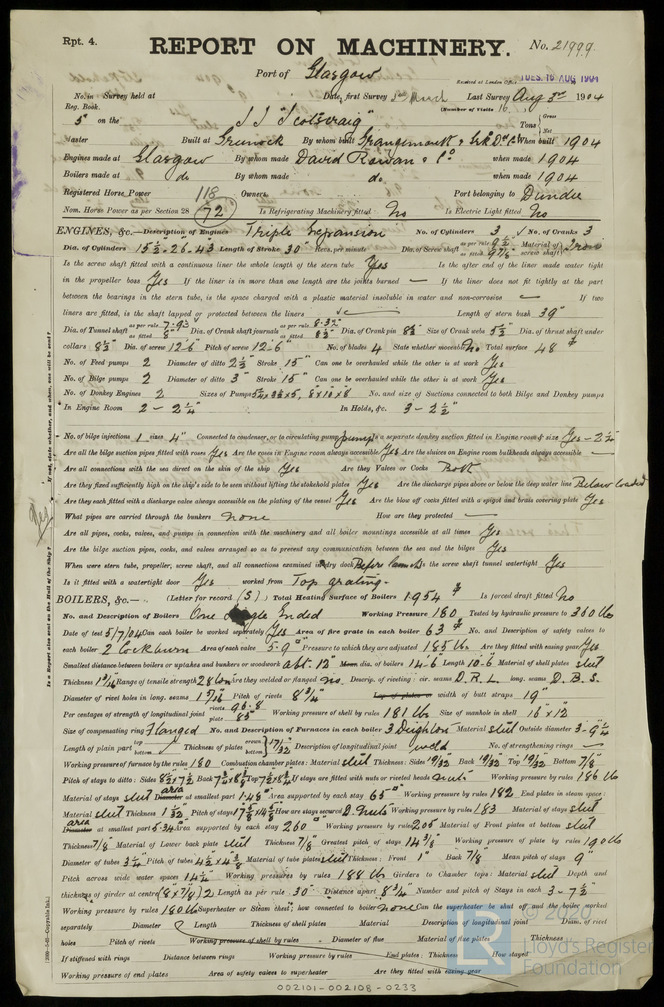 Rpt. 4.
REPORT ON MACHINERY. No. 21999
Port of Glasgow
Received at London Office TUES. 16 AUG 1904
No. in Survey held at Date, first Survey March Last Survey Aug 3rd 1904
Reg. Book. (Number of Visits 16
5 on the S S "Scotscraig" Tons Gross Net
Master Built at Greenock By whom built Grangemouth & Grk D. Co. When built 1904
Engines made at Glasgow By whom made David Rowan & Co. when made 1904
Boilers made at do By whom made do. when made 1904
Registered Horse Power Owners Port belonging to Dundee
Nom. Horse Power as per Section 28 118 72 Is Refrigerating Machinery fitted No Is Electric Light fitted No
ENGINES, &c.—Description of Engines Triple Expansion No. of Cylinders 3 No. of Cranks 3
Dia. of Cylinders 15½-26-43 Length of Stroke 30" Revs. per minute Dia. of Screw shaft as per rule 9½ as fitted 9⅞ Material of screw shaft Iron
Is the screw shaft fitted with a continuous liner the whole length of the stern tube Yes Is the after end of the liner made water tight
in the propeller boss Yes If the liner is in more than one length are the joints burned — If the liner does not fit tightly at the part
between the bearings in the stern tube, is the space charged with a plastic material insoluble in water and non-corrosive — If two
liners are fitted, is the shaft lapped or protected between the liners — Length of stern bush 39"
Dia. of Tunnel shaft as per rule 7.93 as fitted 8" Dia. of Crank shaft journals as per rule 8.32 as fitted 8½ Dia. of Crank pin 8½ Size of Crank webs 5½ Dia. of thrust shaft under
collars 8½ Dia. of screw 12-6 Pitch of screw 12-6" No. of blades 4 State whether moveable No Total surface 48
No. of Feed pumps 2 Diameter of ditto 2½ Stroke 15" Can one be overhauled while the other is at work Yes
No. of Bilge pumps 2 Diameter of ditto 3" Stroke 15" Can one be overhauled while the other is at work Yes
No. of Donkey Engines 2 Sizes of Pumps 5¼x3½x5, 8x10x8 No. and size of Suctions connected to both Bilge and Donkey pumps
In Engine Room 2 - 2¼" In Holds, &c. 3 - 2½"
No. of bilge injections 1 sizes 4" Connected to condenser, or to circulating pump pump Is a separate donkey suction fitted in Engine room & size Yes - 2½
Are all the bilge suction pipes fitted with roses Yes Are the roses in Engine room always accessible Yes Are the sluices on Engine room bulkheads always accessible —
Are all connections with the sea direct on the skin of the ship Yes Are they Valves or Cocks Both
Are they fixed sufficiently high on the ship's side to be seen without lifting the stokehold plates Yes Are the discharge pipes above or below the deep water line Below loaded
Are they each fitted with a discharge valve always accessible on the plating of the vessel Yes Are the blow off cocks fitted with a spigot and brass covering plate Yes
What pipes are carried through the bunkers none How are they protected —
Are all pipes, cocks, valves, and pumps in connection with the machinery and all boiler mountings accessible at all times Yes
Are the bilge suction pipes, cocks, and valves arranged so as to prevent any communication between the sea and the bilges Yes
When were stern tube, propeller, screw shaft, and all connections examined in dry dock Before launch Is the screw shaft tunnel watertight Yes
Is it fitted with a watertight door Yes worked from Top grating.
BOILERS, &c.— (Letter for record (S)) Total Heating Surface of Boilers 1954 Is forced draft fitted No
No. and Description of Boilers One Single Ended Working Pressure 180 Tested by hydraulic pressure to 360 lbs
Date of test 5/7/04 Can each boiler be worked separately Yes Area of fire grate in each boiler 63 No. and Description of safety valves to
each boiler 2 Cockburn Area of each valve 5.9 Pressure to which they are adjusted 185 lb Are they fitted with easing gear Yes
Smallest distance between boilers or uptakes and bunkers or woodwork abt. 12" Mean dia. of boilers 14-6 Length 10-6 Material of shell plates steel
Thickness 1 3/16 Range of tensile strength 28 ton Are they welded or flanged no Descrip. of riveting: cir. seams D.R.L. long. seams D.B.S.
Diameter of rivet holes in long. seams 1 3/16 Pitch of rivets 8¾ Lap of plates or width of butt straps 19"
Per centages of strength of longitudinal joint rivets 96.8 plate 85 Working pressure of shell by rules 181 lbs Size of manhole in shell 16 x 12
Size of compensating ring Flanged No. and Description of Furnaces in each boiler 3 Deighton Material steel Outside diameter 3-9¼
Length of plain part top bottom Thickness of plates crown bottom 17/32 Description of longitudinal joint weld No. of strengthening rings —
Working pressure of furnace by the rules 180 Combustion chamber plates: Material steel Thickness: Sides 19/32 Back 19/32 Top 19/32 Bottom 7/8
Pitch of stays to ditto: Sides 8½x7½ Back Top If stays are fitted with nuts or riveted heads nuts Working pressure by rules 186 lb
Material of stays steel area Diameter at smallest part 1.48 Area supported by each stay 65 Working pressure by rules 182 End plates in steam space:
Material steel Thickness 1 1/32 Pitch of stays How are stays secured D. Nuts Working pressure by rules 183 Material of stays steel
area Diameter at smallest part 5.34 Area supported by each stay 260 Working pressure by rules 205 Material of Front plates at bottom steel
Thickness 7/8 Material of Lower back plate steel Thickness 7/8 Greatest pitch of stays 14⅜ Working pressure of plate by rules 190 lb
Diameter of tubes 3¼ Pitch of tubes Material of tube plates steel Thickness: Front 1" Back 7/8 Mean pitch of stays 9"
Pitch across wide water spaces 14½ Working pressures by rules 188 lb Girders to Chamber tops: Material steel Depth and
thickness of girder at centre (8 x 7/8) 2 Length as per rule 30" Distance apart 8¾ Number and pitch of Stays in each 3 - 7½
Working pressure by rules 180 lb Superheater or Steam chest; how connected to boiler none Can the superheater be shut off and the boiler worked
separately Diameter Length Thickness of shell plates Material Description of longitudinal joint Diam. of rivet
holes Pitch of rivets Working pressure of shell by rules Diameter of flue Material of flue plates Thickness
If stiffened with rings Distance between rings Working pressure by rules End plates: Thickness How stayed
Working pressure of end plates Area of safety valves to superheater Are they fitted with easing gear
© 2020
Lloyd's Register
Foundation
002101-002108-0233
Yes
Is a Report also sent on the Hull of the Ship?
If not, state whether, and when, one will be sent?